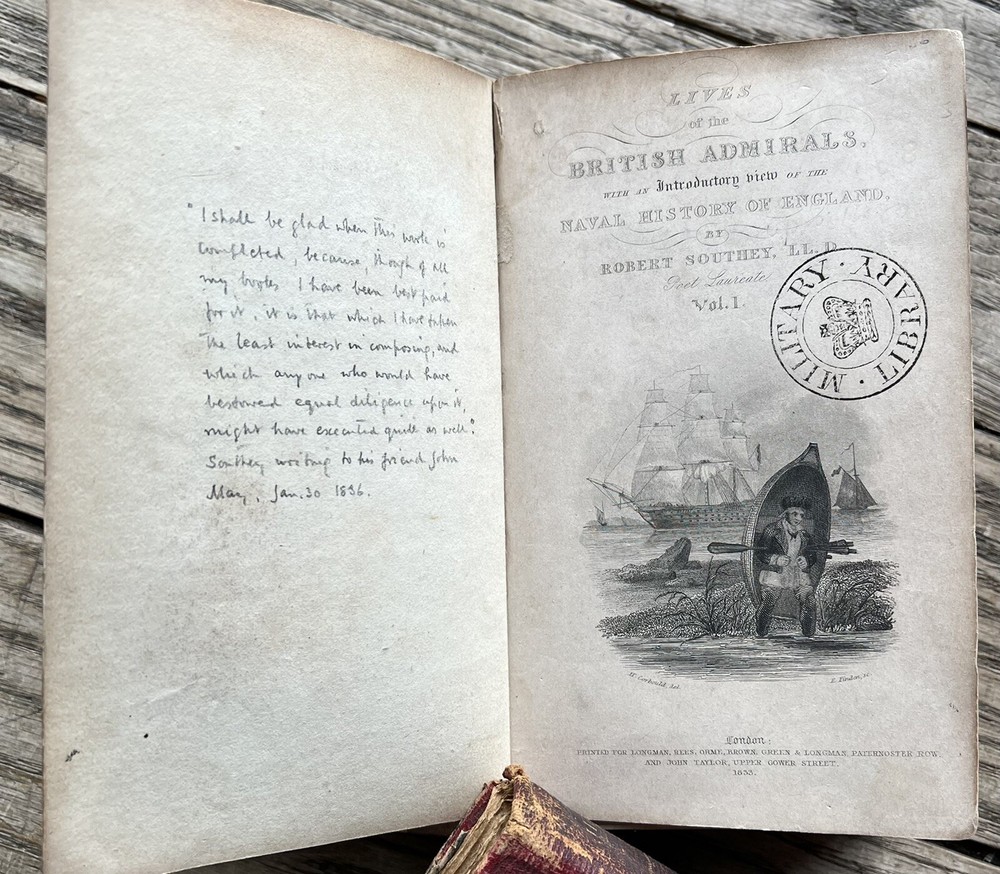 "I shall be glad when this work is
completed, because, though of all
my books I have been best paid
for it, it is that which I have taken
the least interest in composing, and
which any one who would have
bestowed equal diligence upon it,
might have executed quite as well".
Southey writing to his friend John
May, Jan. 30 1836.
LIVES
of the
BRITISH ADMIRALS,
WITH AN Introductory view OF THE
NAVAL HISTORY OF ENGLAND,
BY
ROBERT SOUTHEY, LL.D.
Poet Laureate
Vol. 1.
MILITARY · LIBRARY ·
H. Corbould, del.
E. Finden, sc.
London:
PRINTED FOR LONGMAN, REES, ORME, BROWN, GREEN & LONGMAN, PATERNOSTER ROW
AND JOHN TAYLOR, UPPER GOWER STREET.
1833.